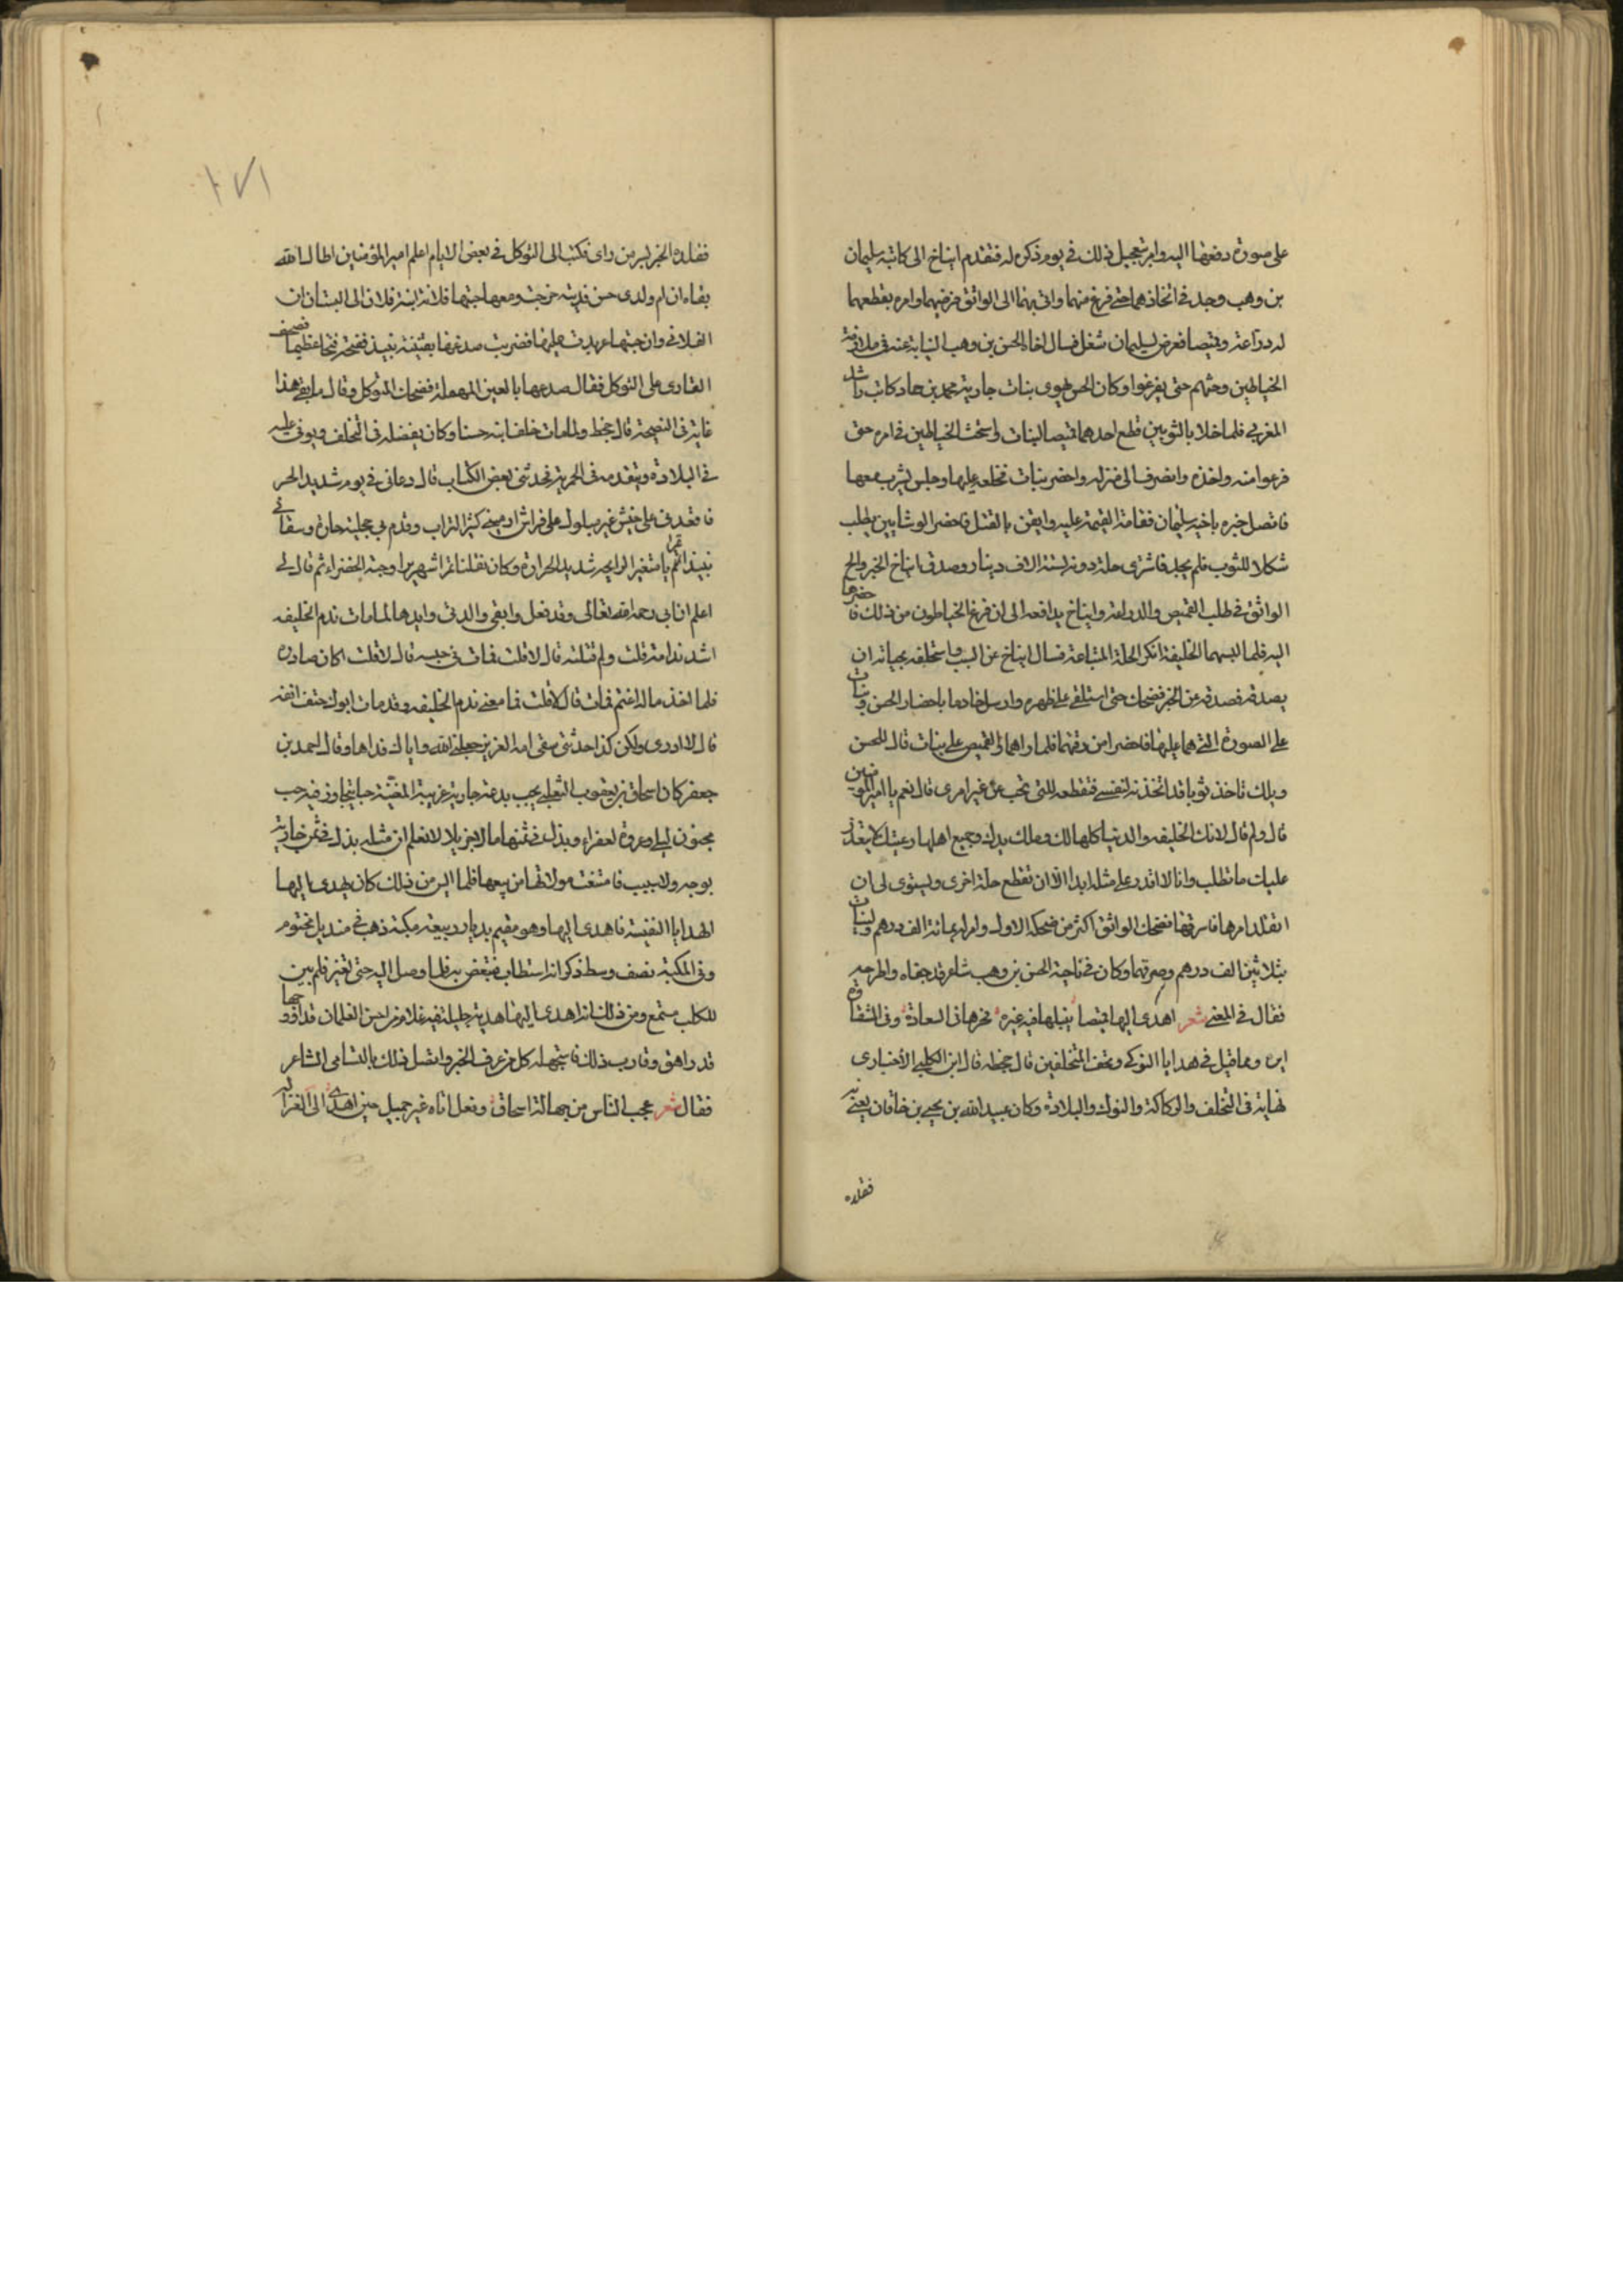 على صورة دفعها اليه وامر بتعجيل ذلك في يوم ذكره له فتقدم ايتاخ الى كاتبه سليمان
بن وهب وجد في اتخاذهما حتى فرغ منهما واتى بهما الى الواثق فرضيهما وامره بقطعهما
له دراعة وقميصا فعرض لسليمان شغل فسال اخاه الحسن بن وهب النيابة عنه في ملازمة
الخياطين وحثهم حتى يفرغوا وكان الحسن يهوى بنات جارية محمد بن حماد كاتب راشد
المغربي فلما خلا بالثوبين قطع احدهما قميصا لبنات واستحث الخياطين في امره حتى
فرغوا منه واخذه وانصرف الى منزله واحضر بنات فخلعه عليها وجلس يشرب معها
فاتصل خبره باخيه سليمان فقامت القيمة عليه وايقن بالقتل فاحضر الوشايين يطلب
شكلا للثوب فلم يجد فاشترى حلة دونه بستة الاف دينار وصدق ايتاخ الخبر والح
الواثق في طلب القميص والدراعة وايتاخ يدافعه الى ان فرغ الخياطون من ذلك فاحضرها
اليه فلما لبسهما الخليفة انكر الحلة المتباعة فسال ايتاخ عن السبب واستحلفه بحياته ان
يصدقه فصدقه عن الخبر فضحك حتى استلقى على ظهره وارسل خادما باحضار الحسن وبنات
على الصورة التي هما عليها فاحضرا من وقتهما فلما راهما والقميص على بنات قال للحسن
ويلك تاخذ ثوبا قد اتخذته لنفسي فتقطعه للتي تحب عن غير امري قال نعم يا امير المومنين
قال ولم قال لانك الخليفه والدنيا كلها لك وملك يدك وجميع اهلها رعيتك لا يتعذر
عليك ما تطلب وانا لا اقدر على مثله ابدا الا ان تقطع حلة اخرى ويستوى لى ان
اتقلد امرها فاسرقها فضحك الواثق اكثر من ضحكه الاول وامر له بمائة الف درهم ولبنات
بثلاثين الف درهم وصرفهما وكان في ناحية الحسن بن وهب شاعر قد جفاه واطرحه
فقال في المعنى شعر اهدى اليها قميصا ينيلها فيه غيره فحرها في السعادة وفي الشقاوة
ايره ومما قيل في هدايا النوكى وتحف المتخلفين قال جحظه قال ابن الكلبي الأخباري
نهاية في التخلف والركاكة والنوك والبلادة وكان عبيد الله بن يحيى بن خاقان يعنى به
فقلده
١٧١
فقلده الخبر بسر من راى فكتب الى المتوكل في بعض الايام اعلم امير المؤمنين اطال الله
بقاءه ان ام ولدى حسن فديته خرجت ومعها حبتها فلانة ابنة فلان الى البستان ان
الفلانى وان حبتها عربدت عليها فضربت صدغها بقنينة نبيذ فضجته فتحا عظيما فصحف
القارى على المتوكل فقال صدعها بالعين المهملة فضحك المتوكل وقال ما بقى هذا
غاية في النصيحة قال جحظ ولما مات خلف ابنه حسنا وكان يفضله في التخلف ويوفى عليه
في البلادة ويتقدمه في الحمرية فحدثنى بعض الكتاب قال دعانى في يوم شديد الحر
فاقعدنى على خيش غير مبلول على فراش ارمنى كثير التراب وقدم لي عجلية حارة وسقانى
نبيذا تمريا متغير الرايحه شديد الحرارة وكان نقلنا تمرا شهريرا وحبة الخضراء ثم قال لي
اعلم ان ابي رحمه الله تعالى وقد فعل وابقى والدتى وايدها لما مات ندم الخليفه
اشد ندامة قلت ولم قتلته قال لا قلت فمات في حبسه قال لا قلت اكان صادره
فلما اخذ ماله اغتم فمات قال لا قلت فما معنى ندم الخليفه وقد مات ابوك حتف انفه
قال لا ادرى ولكن كذا حدثتنى ستى امه العزيز جعلنى الله واياك فداها وقال احمد بن
جعفر كان اسحاق بن يعقوب التغلبي يحب بدعة جارية عريبة المغنية حبا يتجاوز فيه حب
مجنون ليلى وعروة لعفراء وبذل في ثمنها مالا جزيلا لا نعلم ان مثله بذل في ثمن جارية
بوجه ولا سبب فامتنعت مولاتها من بيعها فلما ايس من ذلك كان يهدى اليها
الهدايا النفيسة فاهدى اليها وهو مقيم بديار ربيعة مكبة ذهب في منديل مختوم
وفي المكبة نصف وسط ذكر انه استطابه فتبعض به فلما وصل اليه حتى تغير فلم يبن
للكلب مستمتع ومن ذلك انه اهدى اليها هدية جليلة فيها غلام من احسن الغلمان قد اوجها
قد راهق وقارب ذلك فاستجهله كل من عرف الخبر واتصل ذلك بالتسامى الشاعر
فقال شعر عجب الناس من جهالة اسحاق وفعل اتاه غير جميل حين اهدى الى الغزاله